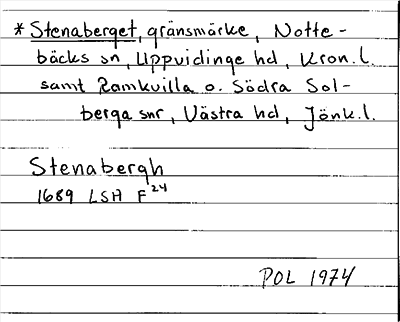 * Stenaberget, gränsmärke, Notte-
bäcks sn, Uppvidinge hd, Kron. l.
samt Ramkvilla o. Södra Sol-
berga snr, Västra hd, Jönk. l.
Stenabergh
1689 LSA F 24
POL 1974